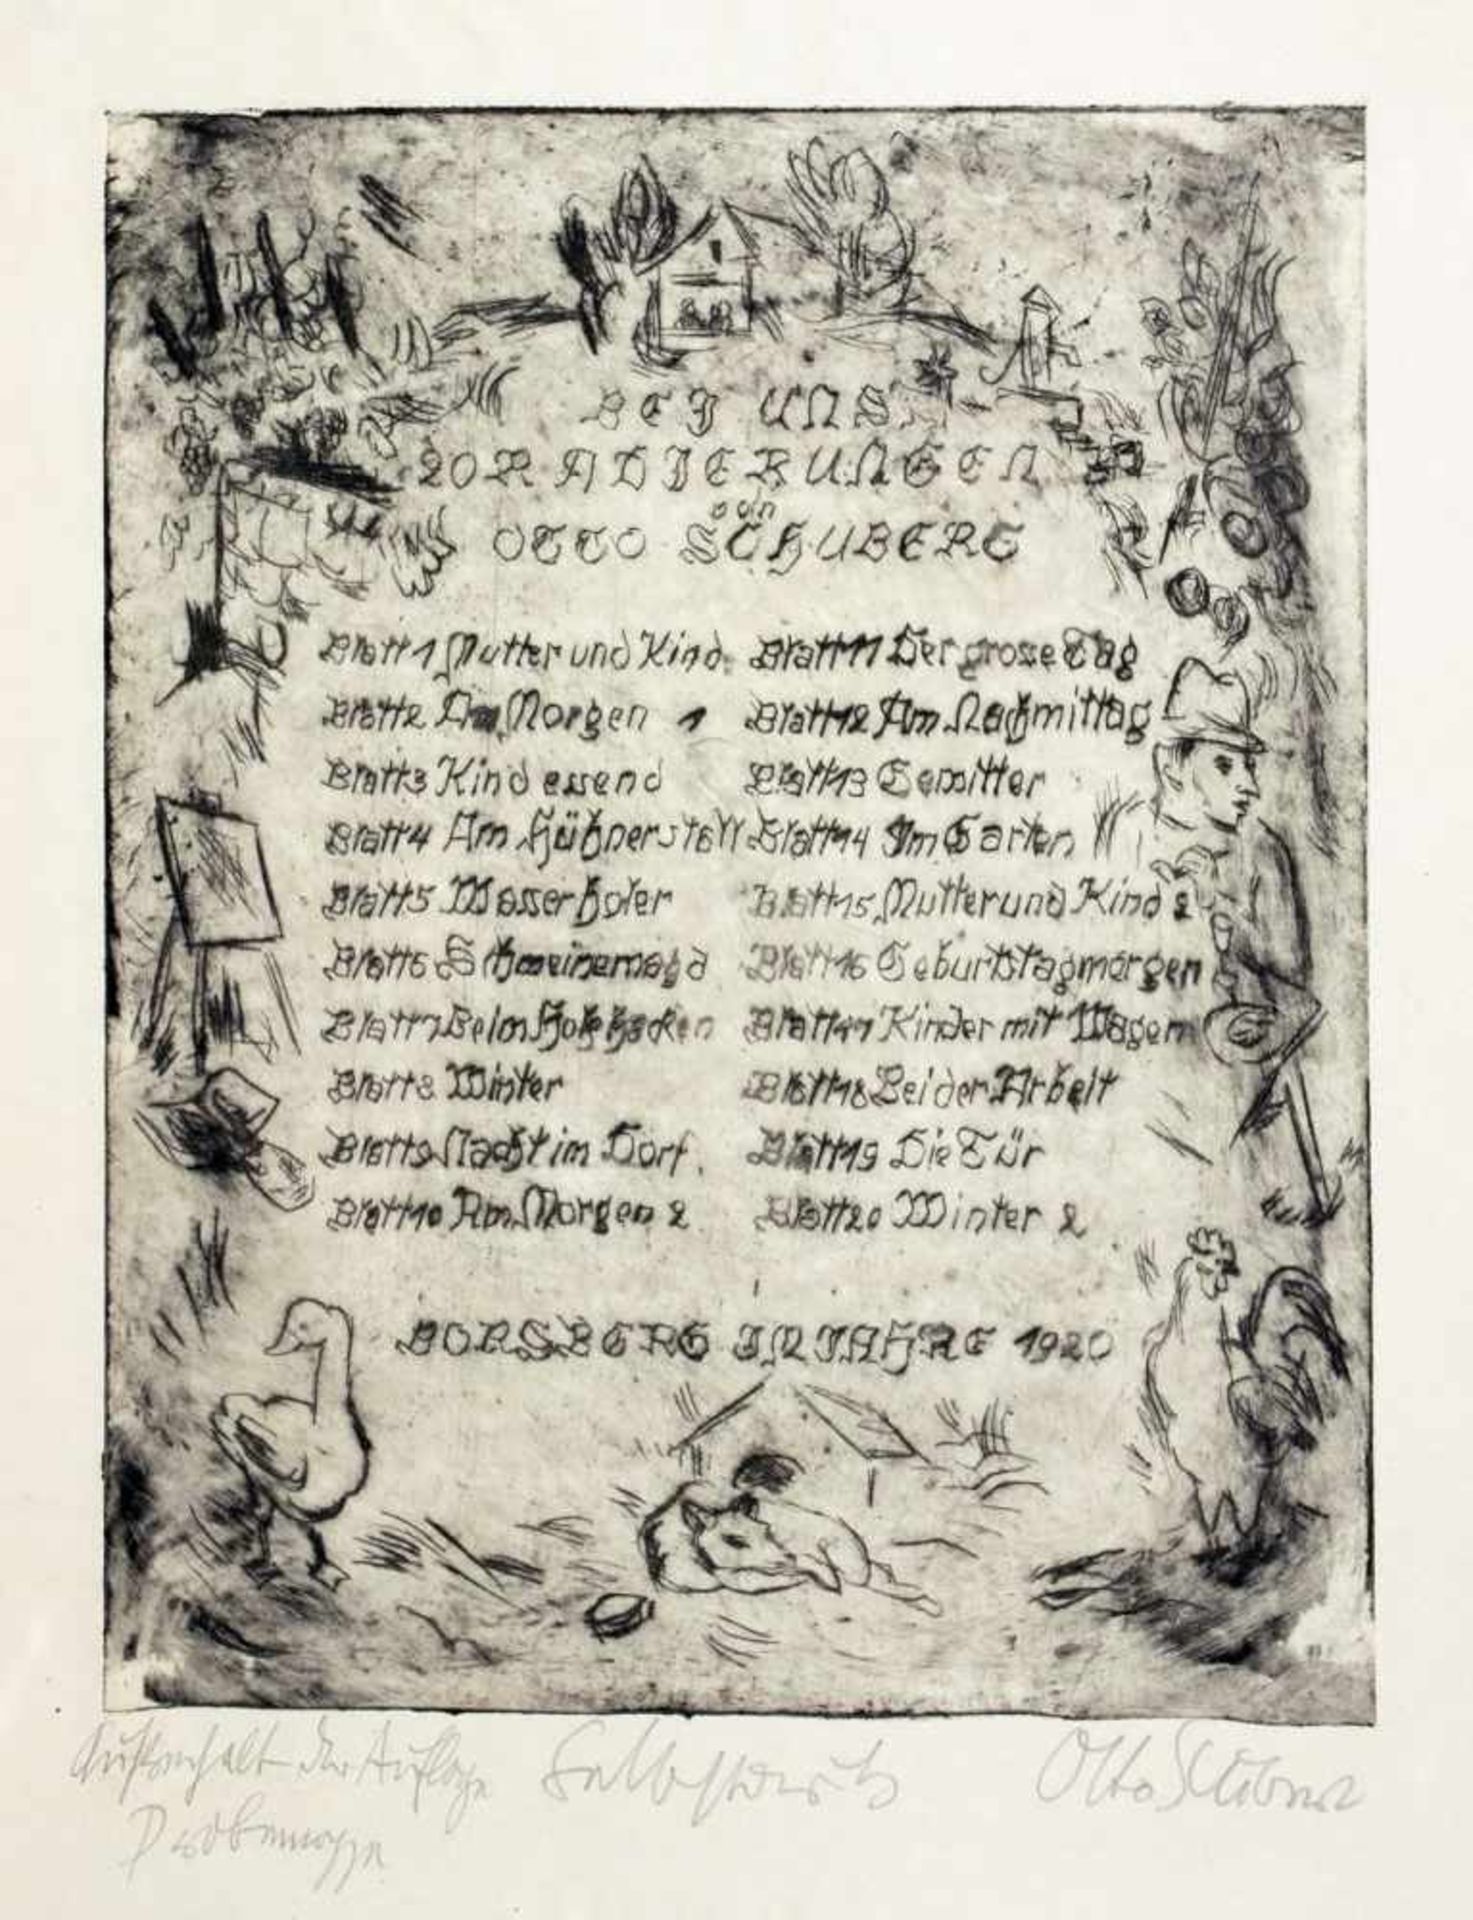 BEJ UNS
20 RADJERUNGEN
von
OTTO SCHUBERT
Blatt 1 Mutter und Kind
Blatt 2 Am Morgen 1
Blatt 3 Kind essend
Blatt 4 Am Hühnerstall
Blatt 5 Wasserholer
Blatt 6 Schweinemagd
Blatt 7 Beim Holzhacken
Blatt 8 Winter
Blatt 9 Nacht im Dorf
Blatt 10 Am Morgen 2
Blatt 11 Der grose Tag
Blatt 12 Am Nachmittag
Blatt 13 Gewitter
Blatt 14 Im Garten
Blatt 15 Mutter und Kind 2
Blatt 16 Geburtstagmorgen
Blatt 17 Kinder mit Wagen
Blatt 18 Bei der Arbeit
Blatt 19 Die Tür
Blatt 20 Winter 2
BORSBERG IM JAHRE 1920
der Auflage Selbstdruck Otto Schubert